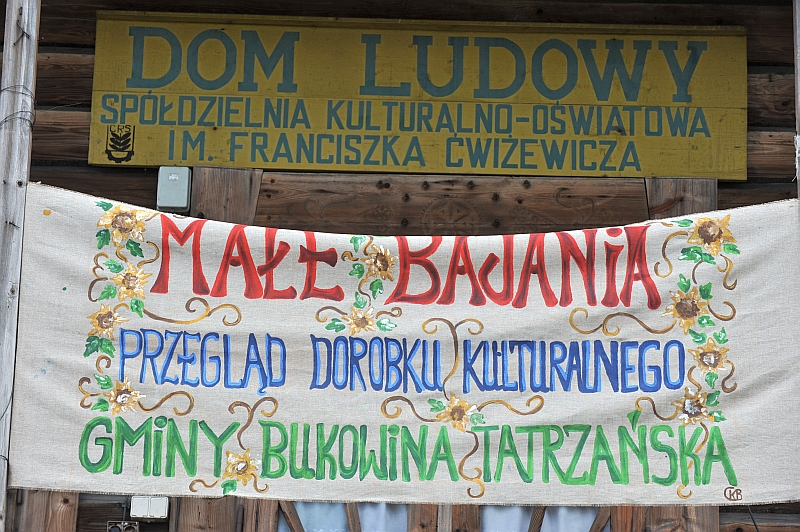 DOM LUDOWY
SPÓŁDZIELNIA KULTURALNO-OŚWIATOWA
IM. FRANCISZKA ĆWIŻEWICZA
CRS
MAŁE BAJANIA
PRZEGLĄD DOROBKU KULTURALNEGO
GMINY BUKOWINA TATRZAŃSKA
KB